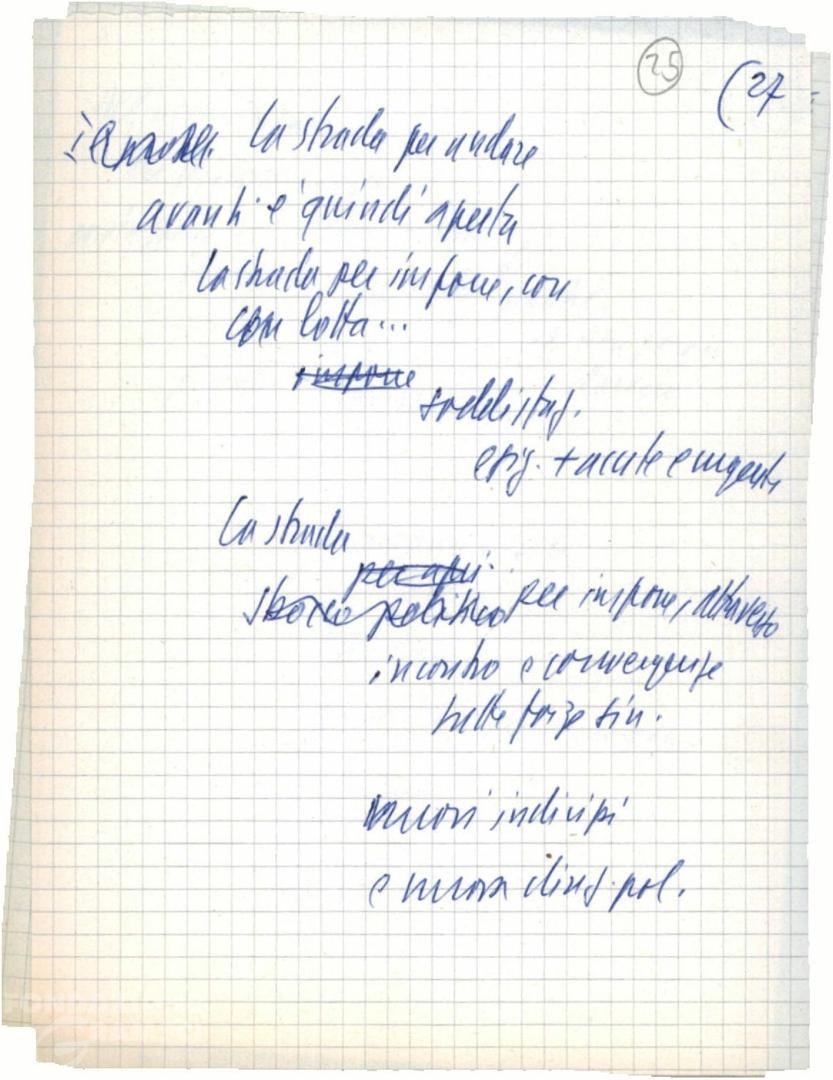 25
(27
La strada per andare
avanti è quindi aperta
La strada per imporre, con
con lotta...
imporre
soddisfaz.
esig. + acute e urgenti
La strada
per apri.
sbocco politico per imporre, attraverso
incontro e convergenze
tutte forze sin.
nuovi indirizzi
e nuova direz. pol.